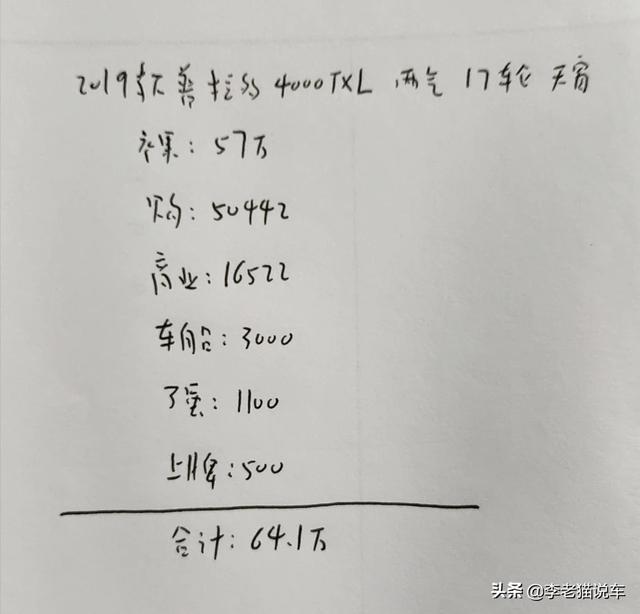 2019款普拉多4000TXL 两气 17轮 天窗
裸车:57万
购:50442
商业:16522
车船:3000
交强:1100
上牌:500
合计:64.1万
头条 @李老猫说车